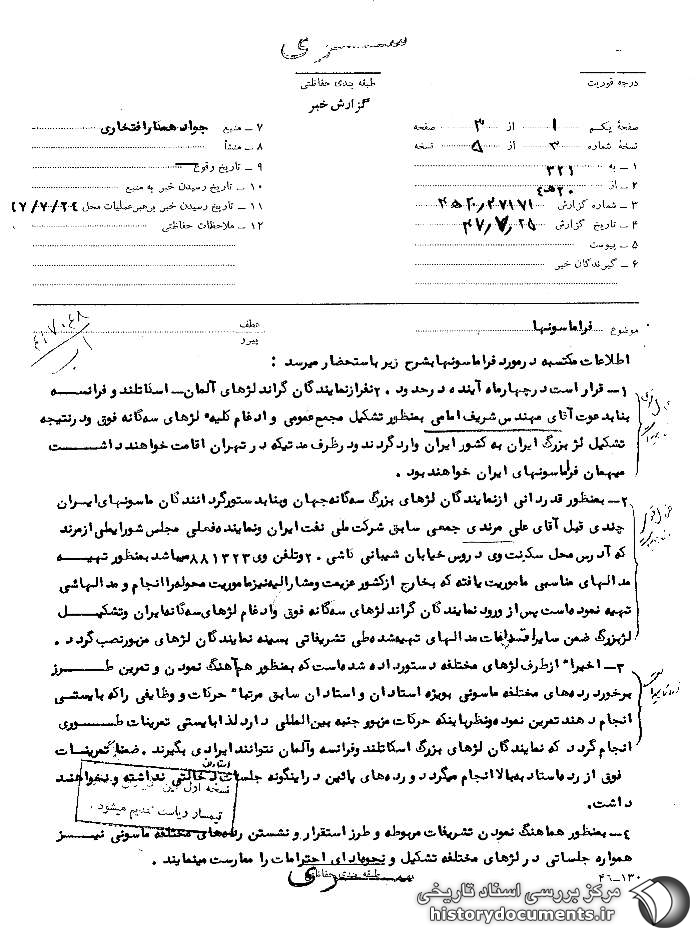 سری
طبقه بندی حفاظتی
درجه فوریت
گزارش خبر
صفحهٔ یکم ۱ از ۳ صفحه
نسخهٔ شماره ۳ از ۵ نسخه
۱ ـ به ۳۲۱
۲ ـ از ۲۰ﻫ۴
۳ ـ شماره گزارش
۴ ـ تاریخ گزارش ۴۷٫۷٫۲۵
۵ ـ پیوست
۶ ـ گیرندگان خبر
۷ ـ منبع جواد همتا رافتخاری
۸ ـ منشأ
۹ ـ تاریخ وقوع
۱۰ ـ تاریخ رسیدن خبر به منبع
۱۱ ـ تاریخ رسیدن خبر برهبر عملیات محل ۴۷/۷/۲۴
۱۲ ـ ملاحظات حفاظتی
موضوع فراماسونها
عطف
پیرو
اطلاعات مکتسبه در مورد فراماسونها بشرح زیر باستحضار میرسد :
۱ـ قرار است در چهار ماه آینده در حدود ۲۰ نفر از نمایندگان گراند لژهای آلمان ـ اسکاتلند و فرانسه
بنا بدعوت آقای مهندس شریف امامی بمنظور تشکیل مجمع عمومی و ادغام کلیه لژهای سه گانه فوق و در نتیجه
تشکیل لژ بزرگ ایران به کشور ایران وارد گردند و در ظرف مدتیکه در تهران اقامت خواهند داشت
میهمان فراماسونهای ایران خواهند بود .
۲ـ بمنظور قدردانی از نمایندگان لژهای بزرگ سه گانه جهان و بنا بدستور گردانندگان ماسونهای ایران
چندی قبل آقای علی مرندی جمعی سابق شرکت ملی نفت ایران و نماینده فعلی مجلس شورایملی از مرند
که آدرس محل سکونت وی دروس خیابان شیبانی کاشی ۲۰ و تلفن وی ۸۸۱۳۲۳ میباشد بمنظور تهیه
مدالهای مناسبی ماموریت یافته که بخارج از کشور عزیمت و مشارالیه نیز ماموریت محوله را انجام و مدالهاشی
تهیه نموده است پس از ورود نمایندگان گراند لژهای سه گانه فوق و ادغام لژهای سه گانه ایران و تشکیل
لژ بزرگ ضمن سایر اقدامات مدالهای تهیه شده طی تشریفاتی بسینه نمایندگان لژهای مزبور نصب گردد .
۳ـ اخیرا" از طرف لژهای مختلفه دستور داده شده است که بمنظور هم آهنگ نمودن و تمرین طرز
برخورد رده های مختلفه ماسونی بویژه استادان و استادان سابق مرتبا" حرکات و وظایفی را که بایستی
انجام دهند تمرین نموده و نظر باینکه حرکات مزبور جنبه بین المللی دارد لذا بایستی تمرینات طوری
انجام گردد که نمایندگان لژهای بزرگ اسکاتلند و فرانسه و آلمان نتوانند ایرادی بگیرند . ضمنا تمرینات
فوق از رده استاد به بالا انجام میگردد و رده های پائین در اینگونه جلسات دخالتی نداشته و نخواهند
داشت.
نسخه اول
تیمسار ریاست تقدیم میشود .
۴ـ بمنظور هماهنگ نمودن تشریفات مربوطه و طرز استقرار و نشستن رده های مختلفه ماسونی نیز
همواره جلساتی در لژهای مختلفه تشکیل و نحوه ادای احترامات را ممارست مینمایند .
طبقه بندی حفاظتی
سری
۴۶ـ۱۳۰
مرکز بررسی اسناد تاریخی
historydocuments.ir